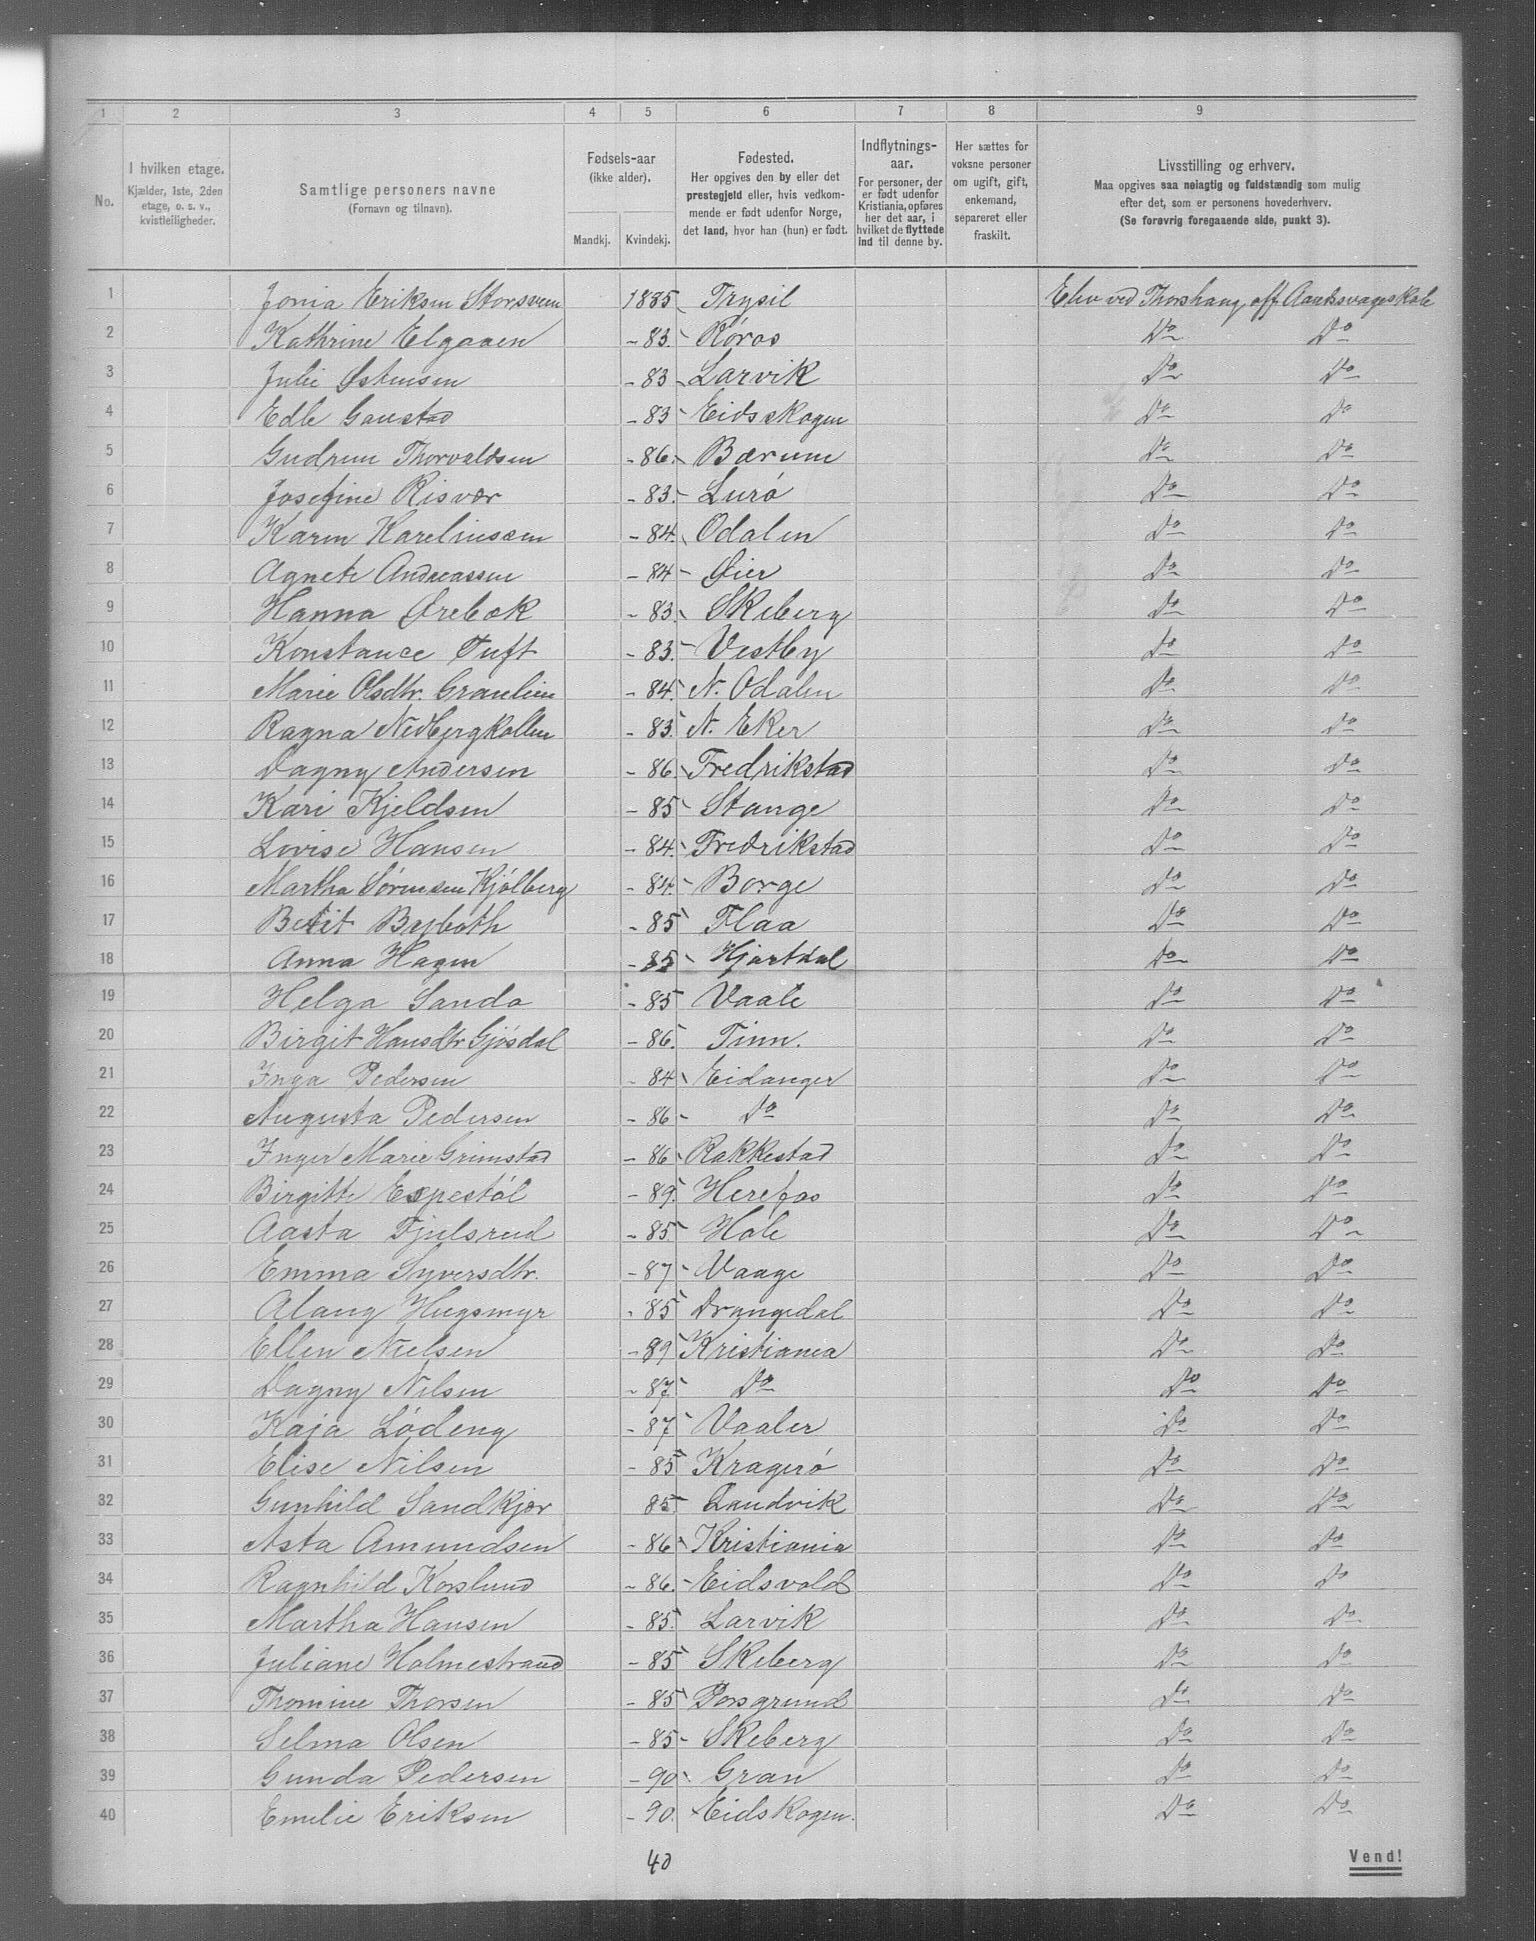 1 2 3 4 5 6 7 8 9
No.
I hvilken etage.
Kjælder, 1ste, 2den
etage, o. s. v.,
kvistleiligheder.
Samtlige personers navne
(Fornavn og tilnavn).
Fødsels-aar
(ikke alder).
Mandkj. Kvindekj.
Fødested.
Her opgives den by eller det
prestegjeld eller, hvis vedkom-
mende er født udenfor Norge,
det land, hvor han (hun) er født.
Indflytnings-
aar.
For personer, der
er født udenfor
Kristiania, opføres
her det aar, i
hvilket de flyttede
ind til denne by.
Her sættes for
voksne personer
om ugift, gift,
enkemand,
separeret eller
fraskilt.
Livsstilling og erhverv.
Maa opgives saa nøiagtig og fuldstændig som mulig
efter det, som er personens hovederhverv.
(Se forøvrig foregaaende side, punkt 3).
1 Jonia Eriksen 1885 Trysil Elev ved Thorshaug off. Aandssvageskole
2 Kathrine Elgaaen - 83. Røros Do Do
3 Julie Østensen - 83 Larvik Do Do
4 Edle Gaustad - 83 Eidsskogen Do Do
5 Gudrun Thorvaldsen - 86. Bærum Do Do
6 Josefine Risvær - 83. Lurø Do Do
7 Karen Kareliussen - 84. Odalen Do Do
8 Agnete Andreassen - 84 Øier Do Do
9 Hanna Ørebæk - 83. Skeberg Do Do
10 Konstance Tuft - 83. Vestby Do Do
11 Marie Olsdtr. - 84. N. Odalen Do Do
12 Ragna Nedbergkollen - 83. N. Eker Do Do
13 Dagny Andersen - 86. Fredrikstad Do Do
14 Kari Kjeldsen - 85 Stange Do Do
15 Lovise Hansen - 84. Fredrikstad Do Do
16 Martha Sørensen Kjølberg - 84. Borge Do Do
17 Berit - 85 Flaa Do Do
18 Anna Hagen - 85 Hjartdal Do Do
19 Helga Sanda - 85 Vaale Do Do
20 Birgit Hansdtr Gjøsdal - 86. Tinn. Do Do
21 Inga Pedersen - 84 Eidanger Do Do
22 Augusta Pedersen - 86 Do Do Do
23 Inger Marie Grimstad - 86 Rakkestad Do Do
24 Birgitte Espestøl - 89. Herefos Do Do
25 Aasta Fjulsrud - 85 Hole Do Do
26 Emma Syversdtr. - 87 Vaage Do Do
27 Hugsmyr - 85 Drangedal Do Do
28 Ellen Nielsen - 89 Kristiania Do Do
29 Dagny Nilsen - 87 Do Do Do
30 Kaja Lødeng - 87 Vaaler Do Do
31 Elise Nilsen - 85 Kragerø Do Do
32 Gunhild Sandkjær 85 Landvik Do Do
33 Asta Amundsen - 86 Kristiania Do Do
34 Ragnhild Korslund - 86. Eidsvold Do Do
35 Martha Hansen - 85. Larvik Do Do
36 Juliane Holmestrand - 85 Skeberg Do Do
37 Thomine Thorsen - 85 Porsgrund Do Do
38 Selma Olsen - 85 Skeberg Do Do
39 Gunda Pedersen - 90 Gran Do Do
40 Emelie Eriksen - 90. Eidskogen. Do Do
40
Vend!